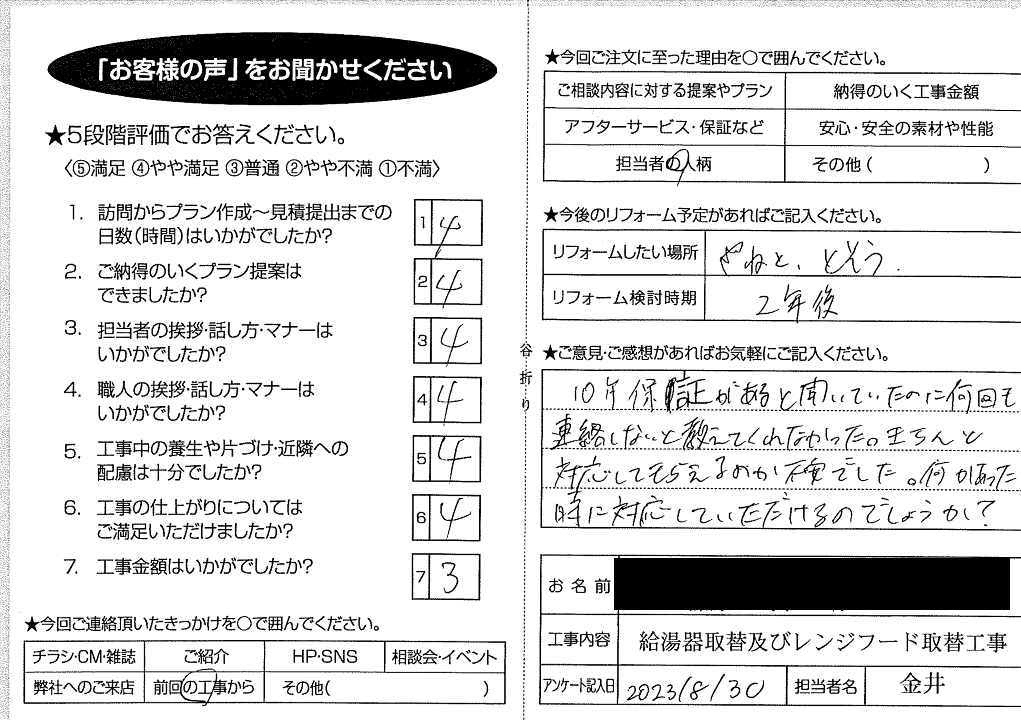 「お客様の声」をお聞かせください
★5段階評価でお答えください。
〈⑤満足 ④やや満足 ③普通 ②やや不満 ①不満〉
1. 訪問からプラン作成～見積提出までの
日数(時間)はいかがでしたか?
1 4
2. ご納得のいくプラン提案は
できましたか?
2 4
3. 担当者の挨拶・話し方・マナーは
いかがでしたか?
3 4
4. 職人の挨拶・話し方・マナーは
いかがでしたか?
4 4
5. 工事中の養生や片づけ・近隣への
配慮は十分でしたか?
5 4
6. 工事の仕上がりについては
ご満足いただけましたか?
6 4
7. 工事金額はいかがでしたか?
7 3
★今回ご連絡頂いたきっかけを〇で囲んでください。
チラシ・CM・雑誌 ご紹介 HP・SNS 相談会・イベント
弊社へのご来店 前回の工事から その他( )
谷折り
★今回ご注文に至った理由を〇で囲んでください。
ご相談内容に対する提案やプラン 納得のいく工事金額
アフターサービス・保証など 安心・安全の素材や性能
担当者の人柄 その他( )
★今後のリフォーム予定があればご記入ください。
リフォームしたい場所 やねと、とそう.
リフォーム検討時期 2年後
★ご意見・ご感想があればお気軽にご記入ください。
10年保証があると聞いていたのに何回も
連絡しないと教えてくれなかった。きちんと
対応してもらえるのか不安でした。何かあった
時に対応していただけるのでしょうか?
お名前
工事内容 給湯器取替及びレンジフード取替工事
アンケート記入日 2023/8/30 担当者名 金井